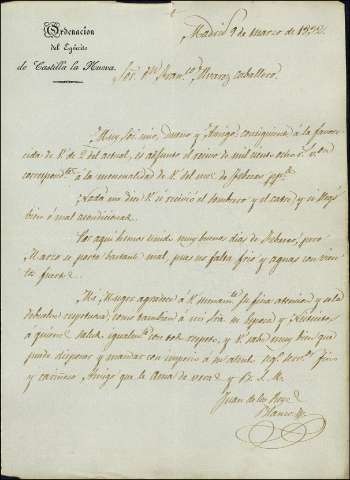 Ordenacion
del Egército
de Castilla la Nueva.
Madrid 9 de marzo de
Sor. Dn. Fran.co Alvarez Caballero.
Muy Sor. mio, Dueño y Amigo consiguiente á la favore-
cida de V. de 2 del actual, es adjunto el recivo de mil ciento ocho rs. vn.
correspond.tes á la mensualidad de V. del mes de Febrero pp.do
Nada me dice V. si recivió el sombrero y el catre y si llegó
bien ó mal acondicionado.
Por aqui hemos tenido muy buenos dias de Febrero, pero
Marzo se porta bastante mal, pues no falta frio y aguas con vien-
to fuerte.
Mi Muger agradece á V. sumam.te su fina atencion y se la
debuelve respetuosa, como tambien á mi Sra. su Esposa y
á quienes saluda igualm.te con todo respeto, y V. sabe muy bien que
puede disponer y mandar con imperio á su atento seg.o serv.or fino
y cariñoso Amigo que le ama de veras y B. S. M.
Juan de los Reyes
Blanco